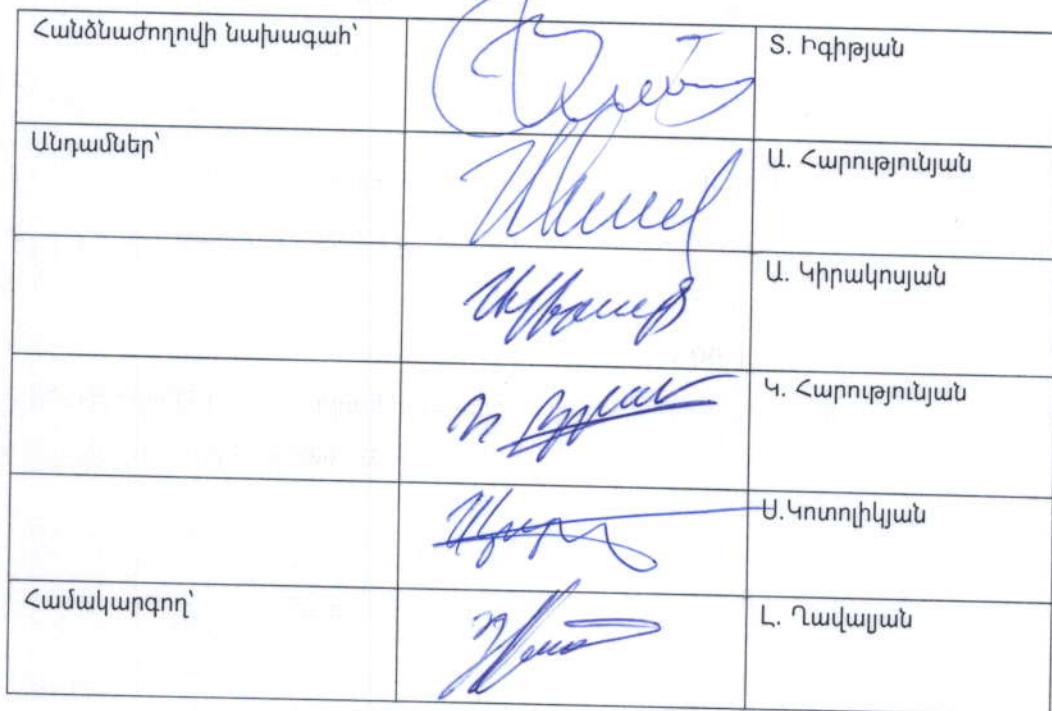 Հանձնաժողովի նախագահ՝
Տ. Իգիթյան
Անդամներ՝
Ա. Հարությունյան
Ա. Կիրակոսյան
Կ. Հարությունյան
Ս.Կոտոլիկյան
Համակարգող՝
Լ. Ղավալյան